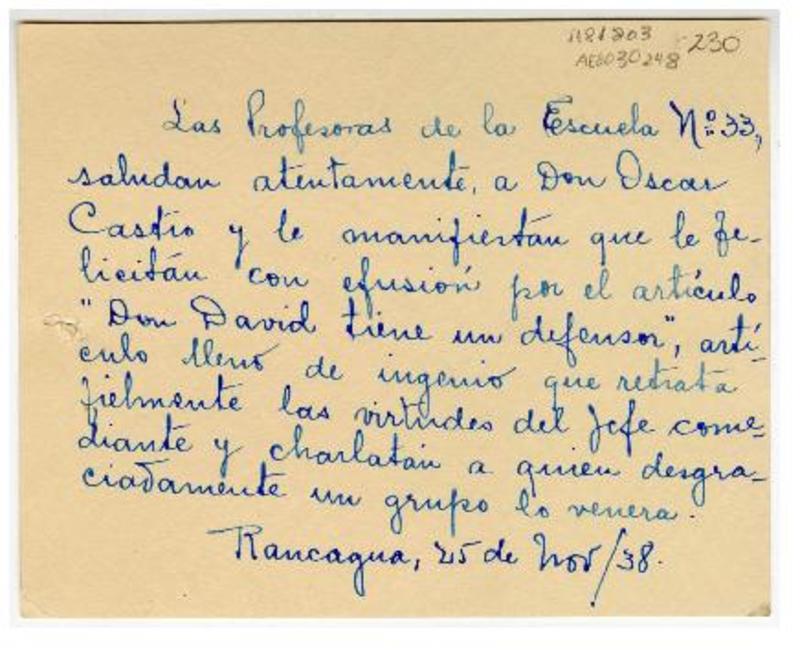 1181203 230
AE0030248
Las Profesoras de la Escuela Nº 33,
saludan atentamente, a Don Oscar
Castro y le manifiestan que le fe-
licitán con efusión por el artículo
"Don David tiene un defensor", artí-
culo lleno de ingenio que retrata
fielmente las virtudes del Jefe come-
diante y charlatán a quien desgra-
ciadamente un grupo lo venera.
Rancagua, 25 de Nov/38.